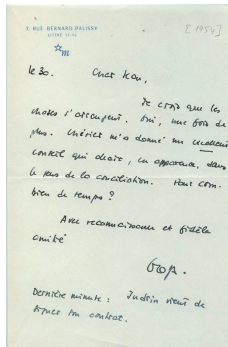 7, RUE BERNARD-PALISSY
[1954]
m
le 30.
Cher Kan,
Je crois que les
choses s'arrangent. Oui, une fois de
plus. Chérier m'a donné un
conseil qui choie, en apparence, dans
le sens de la conciliation. Pour com-
bien de temps ?
Avec reconnaissance et fidèle
amitié
Dernière minute : Jndrin vient de
signer son contrat.